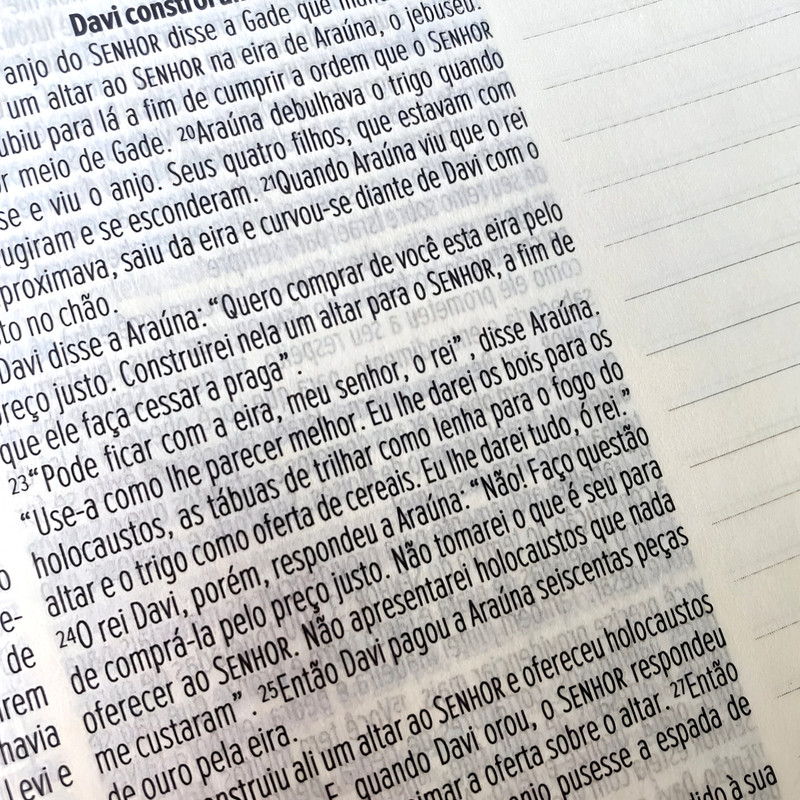 Davi
anjo do SENHOR disse a Gade que
um altar ao SENHOR na eira de Araúna, o jebuseu.
para lá a fim de cumprir a ordem que o SENHOR
meio de Gade. 20Araúna debulhava o trigo quando
se e viu o anjo. Seus quatro filhos, que estavam com
e se esconderam. 21Quando Araúna viu que o rei
proximava, saiu da eira e curvou-se diante de Davi com o
to no chão.
Davi disse a Araúna: “Quero comprar de você esta eira pelo
preço justo. Construirei nela um altar para o SENHOR, a fim de
que ele faça cessar a praga”.
23“Pode ficar com a eira, meu senhor, o rei”, disse Araúna.
“Use-a como lhe parecer melhor. Eu lhe darei os bois para os
holocaustos, as tábuas de trilhar como lenha para o fogo do
altar e o trigo como oferta de cereais. Eu lhe darei tudo, ó rei.”
24O rei Davi, porém, respondeu a Araúna: “Não! Faço questão
de comprá-la pelo preço justo. Não tomarei o que é seu para
oferecer ao SENHOR. Não apresentarei holocaustos que nada
me custaram”. 25Então Davi pagou a Araúna seiscentas peças
de ouro pela eira.
ali um altar ao SENHOR e ofereceu holocaustos
E, quando Davi orou, o SENHOR respondeu
a oferta sobre o altar. 27Então
pusesse a espada de
à sua
e-
de
havia
Levi e